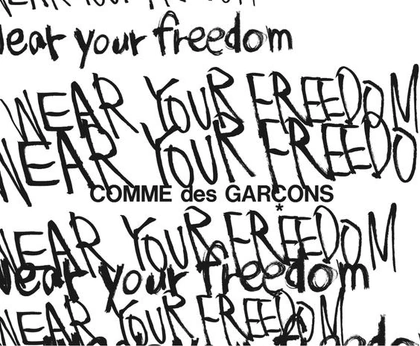 Wear your freedom
wear your freedom
WEAR YOUR FREEDOM
WEAR YOUR FREEDO
COMME des GARÇONS
*
WEAR YOUR FREEDOM
wear your freedom
WEAR YOUR FREEDOM